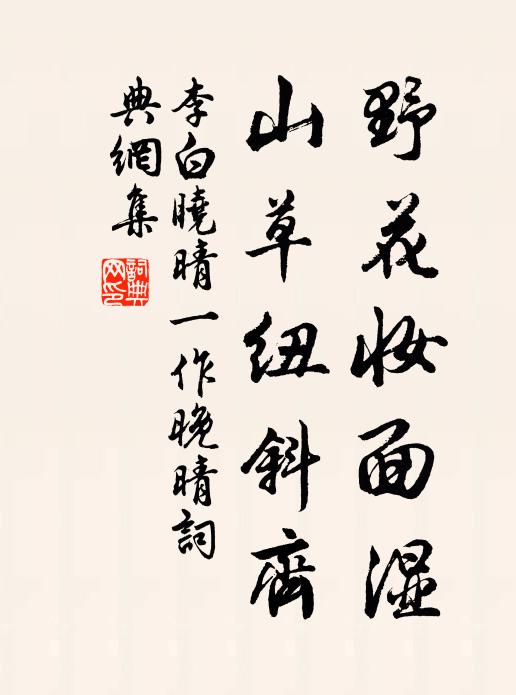 野花妆面湿
山草纽斜齊
李白曉晴一作晚晴詞
典網集
詞典网印